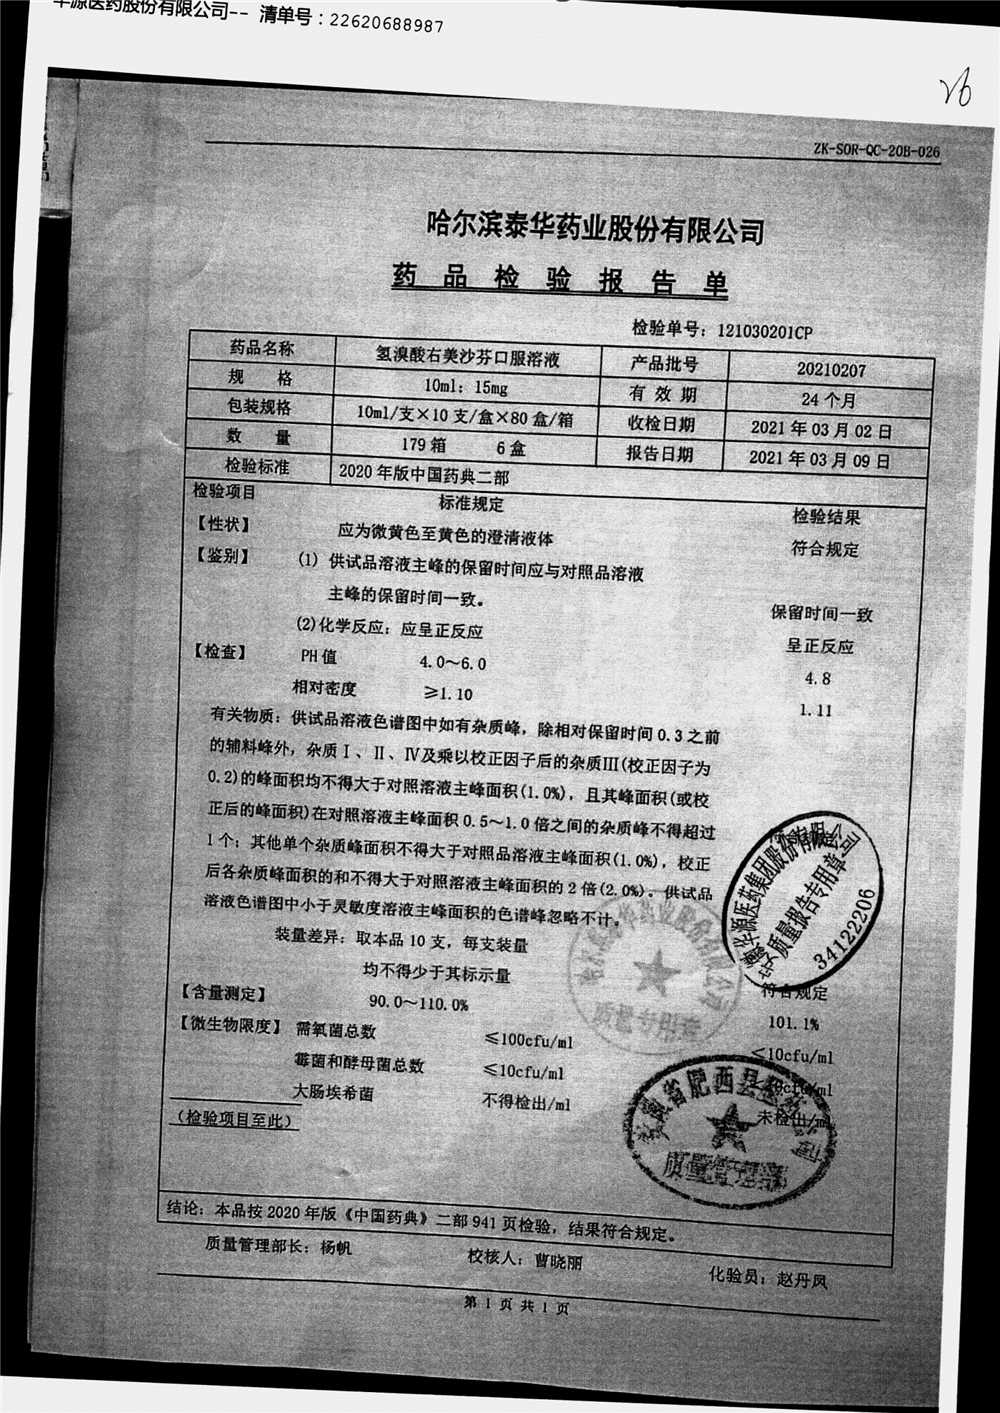 华源医药股份有限公司-- 清单号：22620688987
26
ZK-SOR-QC-20B-026
哈尔滨泰华药业股份有限公司
药品检验报告单
检验单号：121030201CP
药品名称 氢溴酸右美沙芬口服溶液 产品批号 20210207
规 格 10ml：15mg 有效期 24个月
包装规格 10ml/支×10支/盒×80盒/箱 收检日期 2021年03月02日
数 量 179箱 6盒 报告日期 2021年03月09日
检验标准 2020年版中国药典二部
检验项目 标准规定 检验结果
【性状】 应为微黄色至黄色的澄清液体 符合规定
【鉴别】 (1) 供试品溶液主峰的保留时间应与对照品溶液
主峰的保留时间一致。 保留时间一致
(2)化学反应：应呈正反应 呈正反应
【检查】 PH值 4.0～6.0 4.8
相对密度 ≥1.10 1.11
有关物质：供试品溶液色谱图中如有杂质峰，除相对保留时间0.3之前
的辅料峰外，杂质Ⅰ、Ⅱ、Ⅳ及乘以校正因子后的杂质Ⅲ(校正因子为
0.2)的峰面积均不得大于对照溶液主峰面积(1.0%)，且其峰面积(或校
正后的峰面积)在对照溶液主峰面积0.5～1.0倍之间的杂质峰不得超过
1个；其他单个杂质峰面积不得大于对照品溶液主峰面积(1.0%)，校正
后各杂质峰面积的和不得大于对照溶液主峰面积的2倍(2.0%)。供试品
溶液色谱图中小于灵敏度溶液主峰面积的色谱峰忽略不计。
装量差异：取本品10支，每支装量
均不得少于其标示量 符合规定
【含量测定】 90.0～110.0% 101.1%
【微生物限度】 需氧菌总数 ≤100cfu/ml <10cfu/ml
霉菌和酵母菌总数 ≤10cfu/ml <10cfu/ml
大肠埃希菌 不得检出/ml 未检出/ml
(检验项目至此)
安徽华源医药集团股份有限公司
质量报告专用章
34122206
质量专用章
安徽省肥西县医药公司
质量管理部
结论：本品按2020年版《中国药典》二部941页检验，结果符合规定。
质量管理部长：杨帆 校核人：曹晓丽 化验员：赵丹凤
第 1 页 共 1 页